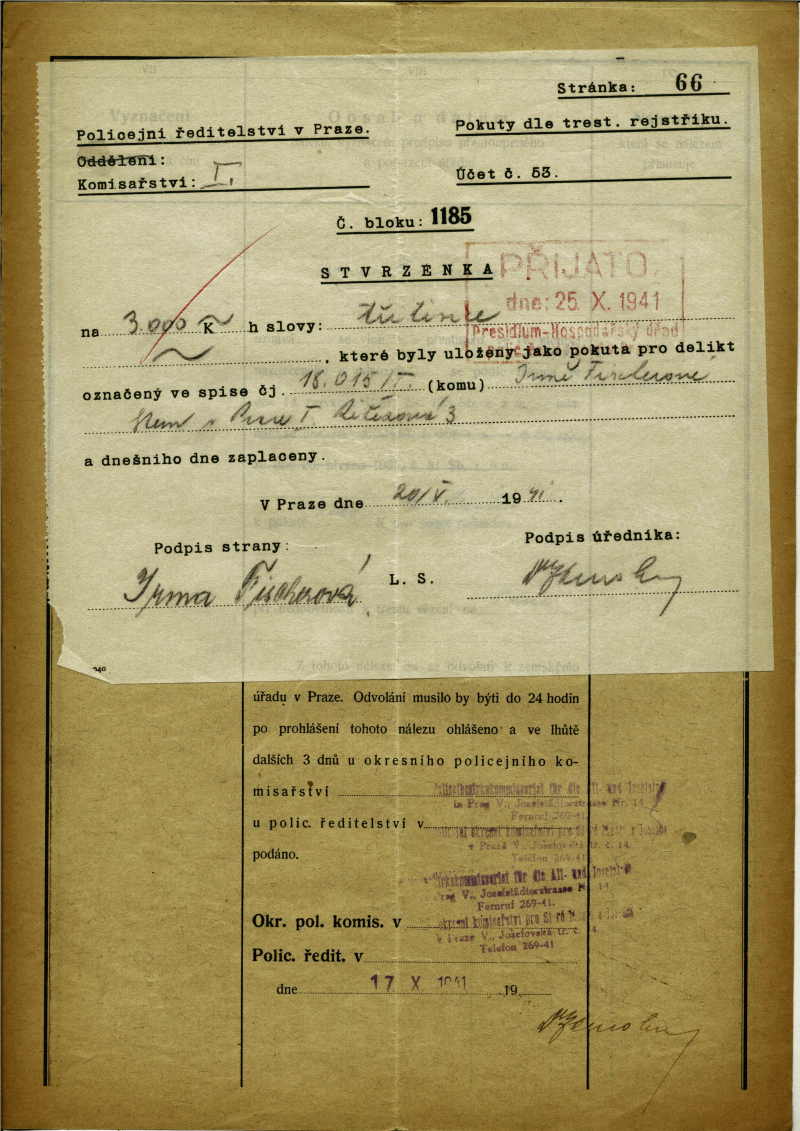 Stránka: 66
Policejní ředitelství v Praze.
Pokuty dle trest. rejstříku.
Oddělení:
Komisařství: I.
Účet č. 53.
Č. bloku: 1185
STVRZENKA
PŘIJATO
dne: 25 X. 1941
Presidium-Hospodářský úřad
na 3.000 K h slovy:
, které byly uloženy jako pokuta pro delikt
označený ve spise čj. 18.015/I. (komu) Irmě Fischerové
a dnešního dne zaplaceny.
V Praze dne 20/X. 1941.
Podpis strany:
Podpis úředníka:
Irma Fischerová
L. S.
Z tohoto nálezu lze se odvolati k zemskému
úřadu v Praze. Odvolání musilo by býti do 24 hodin
po prohlášení tohoto nálezu ohlášeno a ve lhůtě
dalších 3 dnů u okresního policejního ko-
misařství
Polizeibezirkskommissariat für die Alt- und Josefstadt
in Prag V., Josefstädterstrasse Nr. 14.
Fernruf 269-41.
u polic. ředitelství v
v Praze V., Josefovská tř. č. 14.
Telefon 269-41
podáno.
für die Alt- und
V., Josefstädterstrasse 14.
Fernruf 269-41.
Okr. pol. komis. v
v Praze V., Josefovská tř. č. 14.
Telefon 269-41
Polic. ředit. v
dne 17 X 1941 19